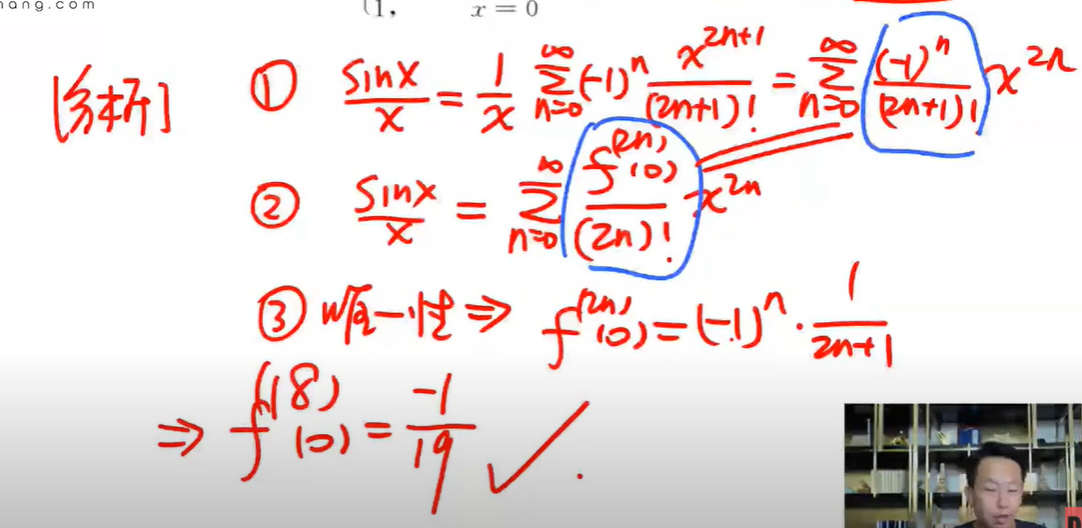 hang.com
1, x = 0
[分析] ① \frac{\sin x}{x} = \frac{1}{x} \sum_{n=0}^{\infty} (-1)^n \frac{x^{2n+1}}{(2n+1)!} = \sum_{n=0}^{\infty} \frac{(-1)^n}{(2n+1)!} x^{2n}
② \frac{\sin x}{x} = \sum_{n=0}^{\infty} \frac{f^{(2n)}(0)}{(2n)!} x^{2n}
③ 唯一性 ⇒ f^{(2n)}(0) = (-1)^n · \frac{1}{2n+1}
⇒ f^{(18)}(0) = \frac{-1}{19} ✓.